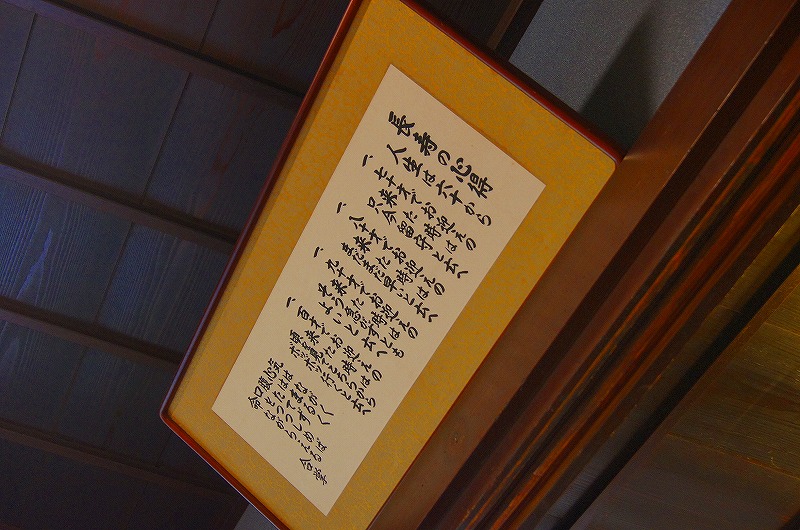 長寿の心得
人生は六十から
一、七十才でお迎えの
来た時は
只今留守と云へ
一、八十才でお迎えの
来た時は
まだまだ早いと云へ
一、九十才でお迎えの
来た時は
そう急がずとも
よいと云へ
一、百才でお迎えの
来た時は
を見てこちらから
ボツボツ行くと云へ
気はながく
心はまるく
腹たてず
口をつつしめば
命ながらえる
合掌